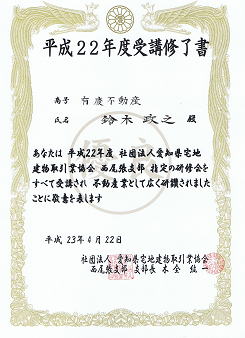 平成22年度受講修了書
商号 有慶不動産
氏名 鈴木政之 殿
あなたは 平成22年度 社団法人愛知県宅地
建物取引業協会 西尾張支部 指定の研修会を
すべて受講され 不動産業として広く研鑽されました
ことに敬意を表します
平成 23年4月22日
社団法人 愛知県宅地建物取引業協会
西尾張支部 支部長 木全 紘一